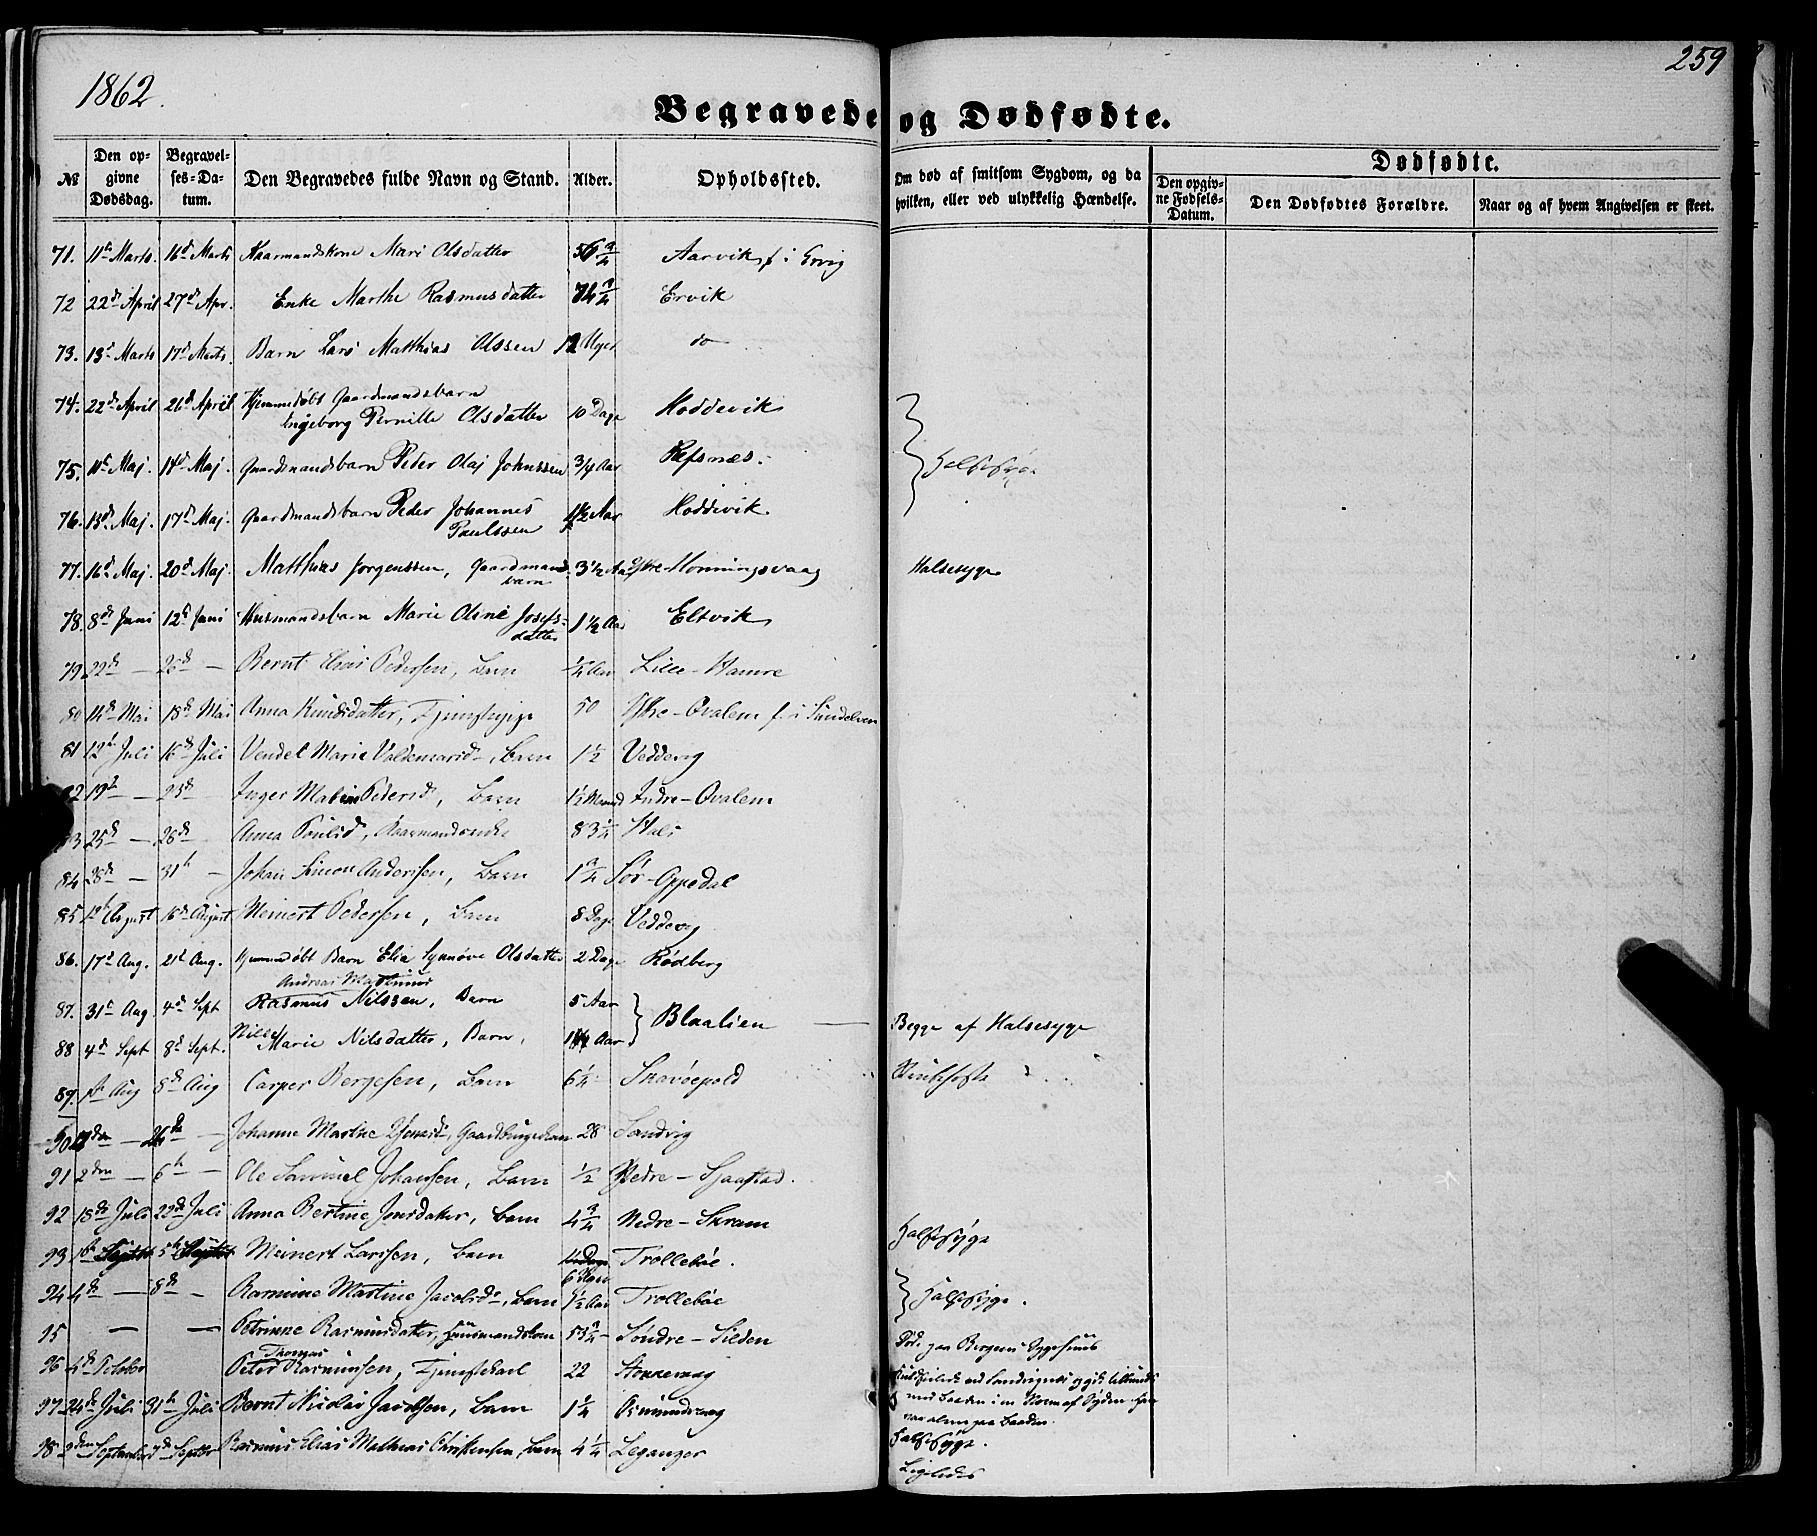 1862.
259
Begravede og Dødfødte.
№ | Den opgivne Dødsdag. | Begravelses-Datum. | Den Begravedes fulde Navn og Stand. | Alder. | Opholdssted. | Om død af smitsom Sygdom, og da hvilken, eller ved ulykkelig Hændelse. | Dødfødte. Den opgivne Fødsels-Datum. | Den Dødfødtes Forældre. | Naar og af hvem Angivelsen er skeet.
71. 11te Marts. 16de Marts Kaarmandskone Mari Olsdatter 56 3/4 Aarvik f. i Ervig
72 22de April 27de Apr. Enke Marthe Rasmusdatter 74 3/4 Ervik
73. 13de Marts 17de Marts. Barn Lars Matthias Olssen 12 Uger do
74. 22de April 26de April Hjemmedøbt Gaardmandsbarn
Ingeborg Pernille Olsdatter 10 Dage Hoddevik
75. 10de Maj. 14de Maj. Gaardmandsbarn Peder Olaj Johnssen 3/4 Aar Refsnæs. } Halsesyge
76. 13de Maj. 17de Maj. Gaardmandsbarn Peder Johannes
Paulssen 1 1/2 Aar Hoddevik
77. 16de Maj. 20de Maj. Matthias Jørgenssen, Gaardmandsbarn 3 1/2 Aar Ytre-Honningsvaag Halsesyge
78. 8de Juni 12te Juni Husmandsbarn Marie Oline Josefsdatter 1 1/2 Aar Eltvik
79 22de — 26de — Bernt Elias Pedersen, Barn 1/4 Aar Lille-Hamre
80 14de Mai 18de Mai Anna Knudsdatter, Tjenestepige 50 Ytre-Qvalem f. i Sundelven
81 12te Juli 16de Juli Vendel Marie Valdemarsd., Barn 1 1/2 Veddevig
82 19de — 23de — Inger Maline Pedersd., Barn 1 1/2 Maaned Indre-Qvalem
83 25de — 28de Anna Poulsd., Kaarmandsenke 83 1/4 Hals
84 28de — 31te — Johan Simon Anderssen, Barn 1 3/4 Sør-Oppedal
85 12te August 16de August Meinert Pedersen, Barn 8 Dage Veddevig
86. 17de Aug. 21de Aug. Hjemmedøbt Barn Elia Synnøve Olsdatter 2 Dage Rødberg
Andreas Martinus
87. 31te Aug. 4de Sept Rasmus Nilssen, Barn 5 Aar
} Blaalien — Begge af Halsesyge
88 4de Sept 8de Sept. Nille Marie Nilsdatter, Barn, 1 1/4 Aar
89. 1ste Aug 8de Aug Casper Bergesen, Barn 6 1/4 Skavøepold
90 — 24de — Johanne Martine 28 Sandvig
91 2den — 6te — Ole Samuel Johansen, Barn 1/2 Nedre-Sjaastad.
92 18de Juli 22de Juli Anna Bertine Jonsdatter, Barn 4 3/4 Nedre-Skram Halsesyge
93 1ste Septbr 5te Septbr Meinert Larssen, Barn 6 Trollebøe.
94 4de — 8de — Rasmine Martine Jacobsd., Barn Aar Trollebøe } Halsesyge.
95 — — Petrinne Rasmusdatter, Huusmandskone 53 3/4 Søndre-Silden Død paa Bergens Sygehuus
Thomas
96 4de October Peter Rasmussen, Tjenestekarl 22 Stokkevaag
97 24de Juli 31te Juli Bernt Nicolai Jacobsen, Barn 1 1/4 Osmundsvaag Halsesyge.
98 3den September 7de Septbr Rasmus Elias Mathias Christensen, Barn 4 1/4 Leganger Ligeledes